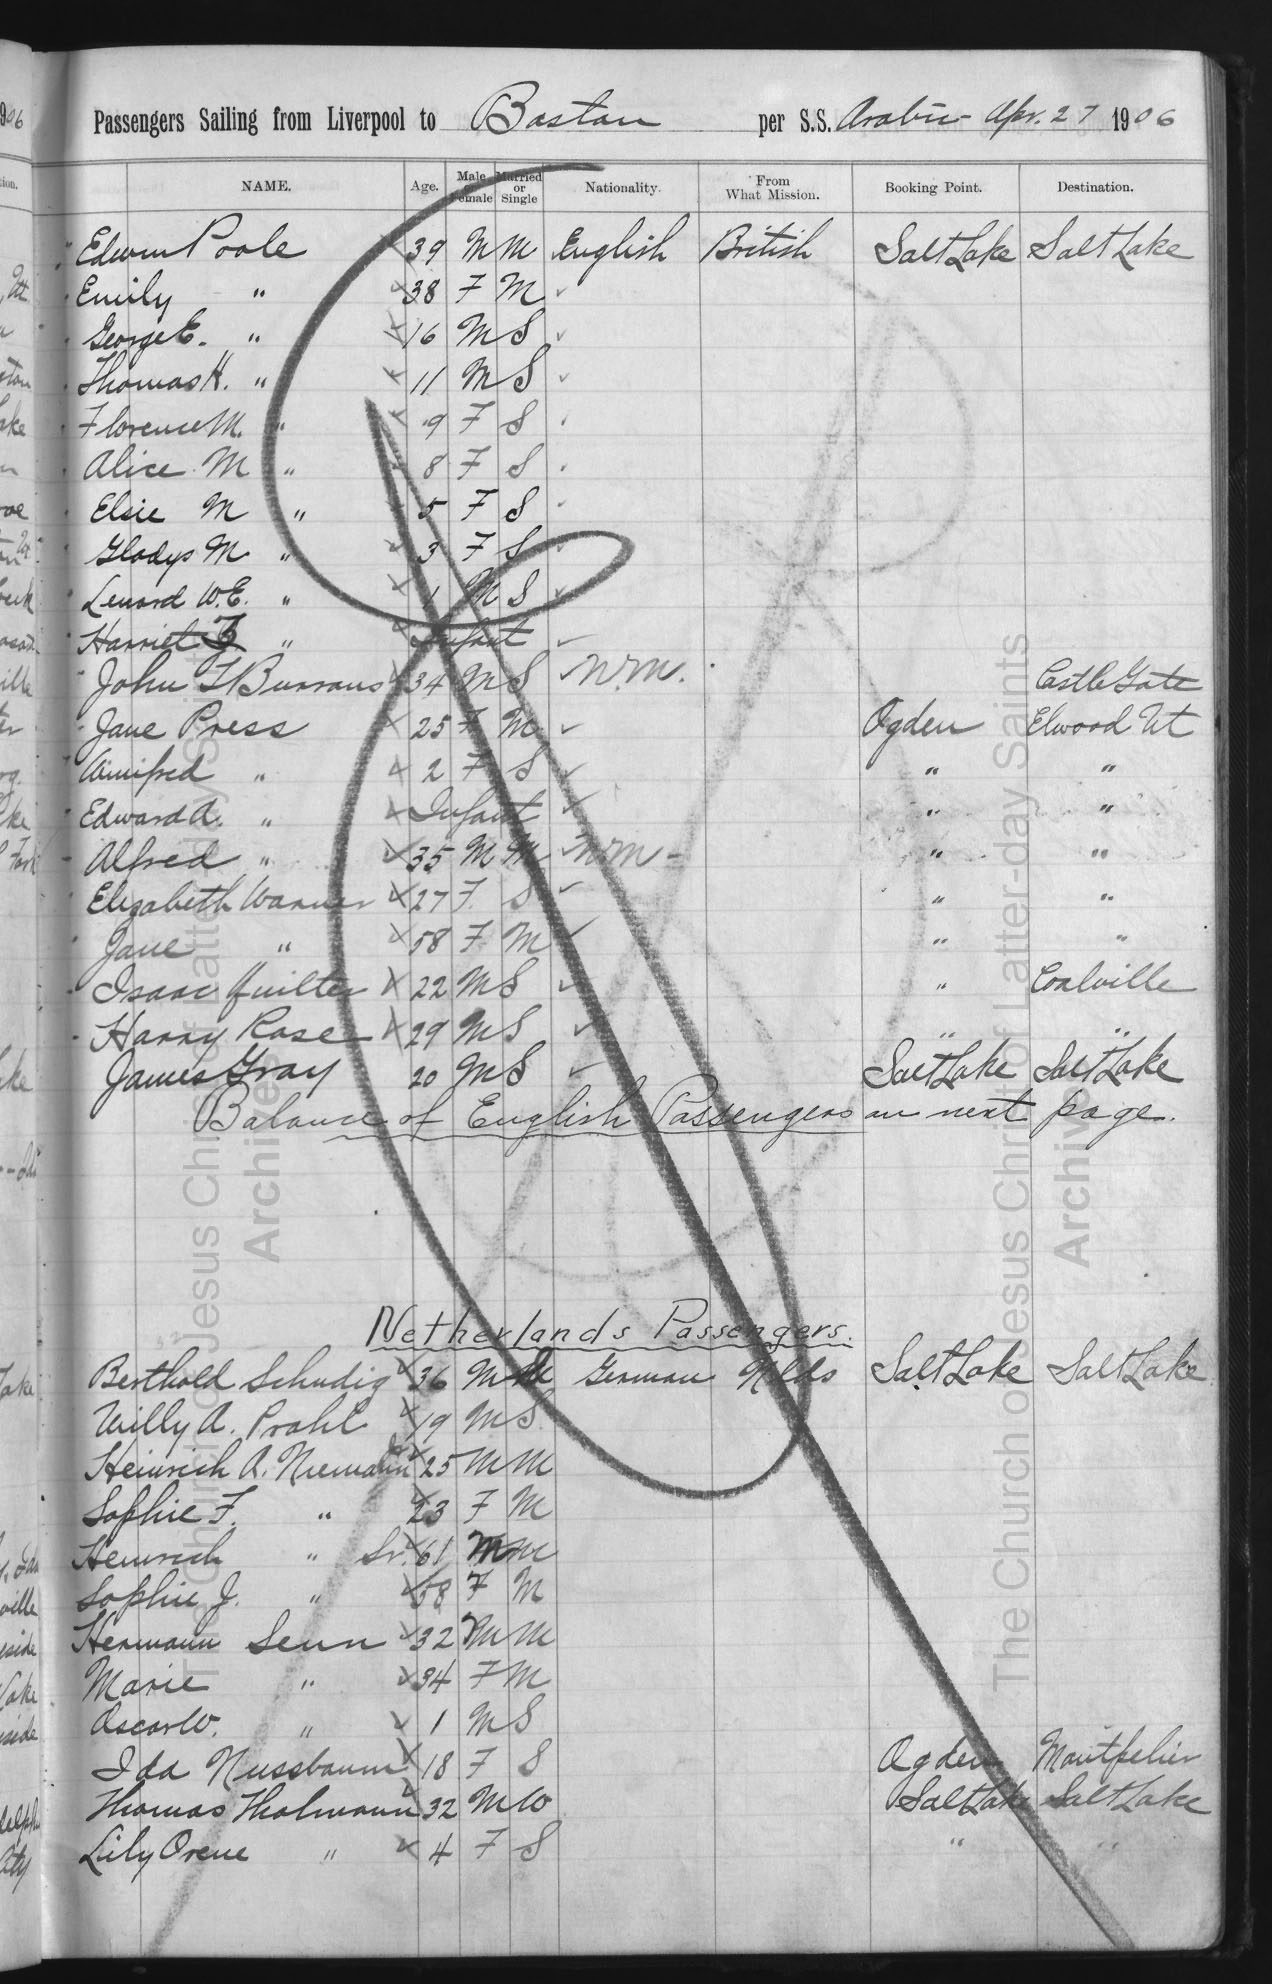 Passengers Sailing from Liverpool to Boston per S.S. Arabic Apr. 27 1906
NAME. Age. Male or Female Married or Single Nationality. From What Mission. Booking Point. Destination.
Edwin Poole 39 M M English British Salt Lake Salt Lake
Emily " 38 F M
George E. " 16 M S
Thomas H. " 11 M S
Florence M. " 9 F S
Alice M " 8 F S
Elsie M " 5 F S
Gladys M " 3 F S
Lenard W.E. " 1 M S
Harriet " Infant
John F Burrows 34 M S N.M. Castle Gate
Jane Press 25 F M Ogden Elwood Ut
Winifred " 2 F S " "
Edward A. " Infant " "
Alfred " 35 M M N M - " "
Elizabeth Warner 27 F S " "
Jane " 58 F M " "
Isaac Quilter 22 M S " Coalville
Harry Rose 29 M S " "
James Gray 20 M S Salt Lake Salt Lake
Balance of English Passengers on next page.
Netherlands Passengers.
Berthold Schudig 36 M M German Nlds Salt Lake Salt Lake
Willy A. Prohl 19 M S
Heinrich A. Niemann 25 M M
Sophie F. " 23 F M
Heinrich " Sr. 61 M M
Sophie J. " 58 F M
Hermann Senn 32 M M
Marie " 34 F M
Oscar W. " 1 M S
Ida Nussbaum 18 F S Ogden Montpelier
Thomas Tholmann 32 M W Salt Lake Salt Lake
Lily Orene " 4 F S " "
The Church of Jesus Christ of Latter-day Saints
Archives
The Church of Jesus Christ of Latter-day Saints
Archives